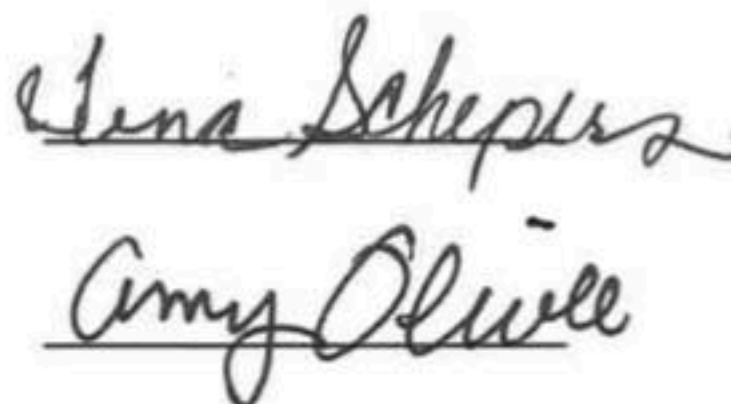 Tina Schepers
Amy Olivell